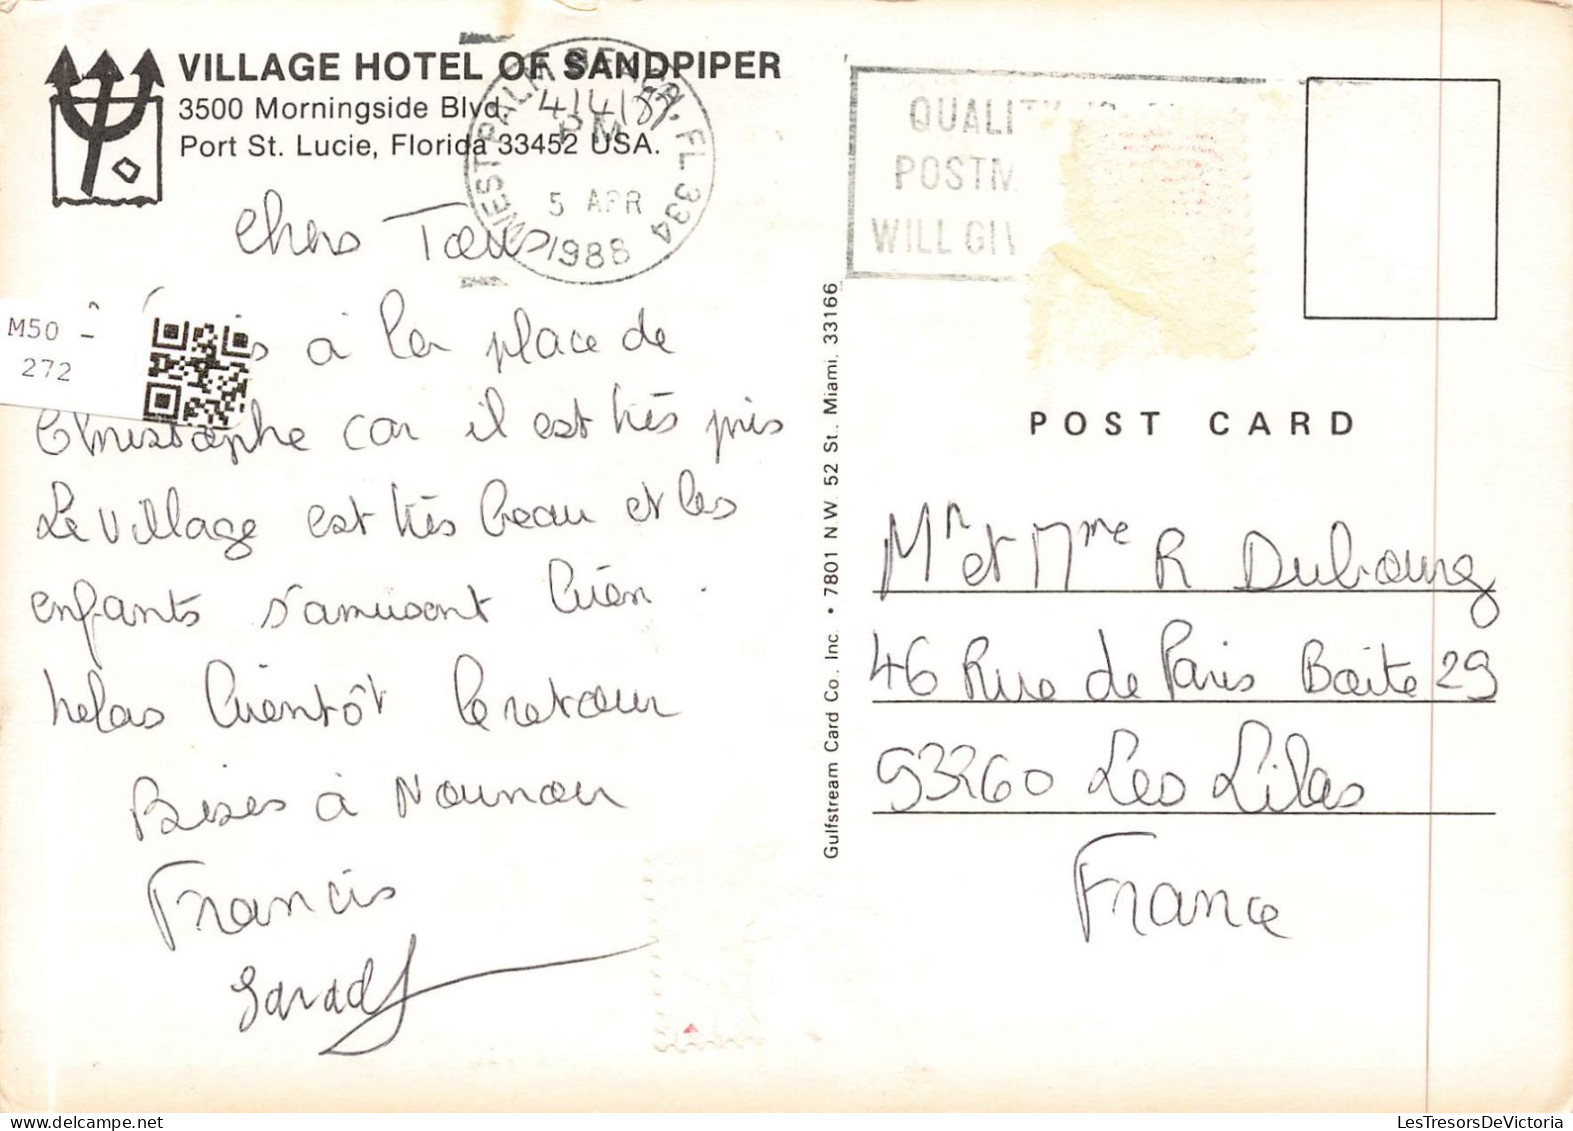 VILLAGE HOTEL OF SANDPIPER
3500 Morningside Blvd.
Port St. Lucie, Florida 33452 USA.
WEST PALM BEACH, FL 334
PM
5 APR
1988
4/4/89
QUALI
POSTM
WILL GIV
Chers Tous
M50 -
272
à la place de
Christophe car il est très pris
Le village est très beau et les
enfants s'amusent bien.
helas bientôt le retour
Bises à Nounou
Francis
Gulfstream Card Co., Inc. • 7801 N.W. 52 St., Miami, 33166
POST CARD
Mr et Mme R Dubourg
46 Rue de Paris Boite 29
93260 Les Lilas
France
LesTresorsDeVictoria